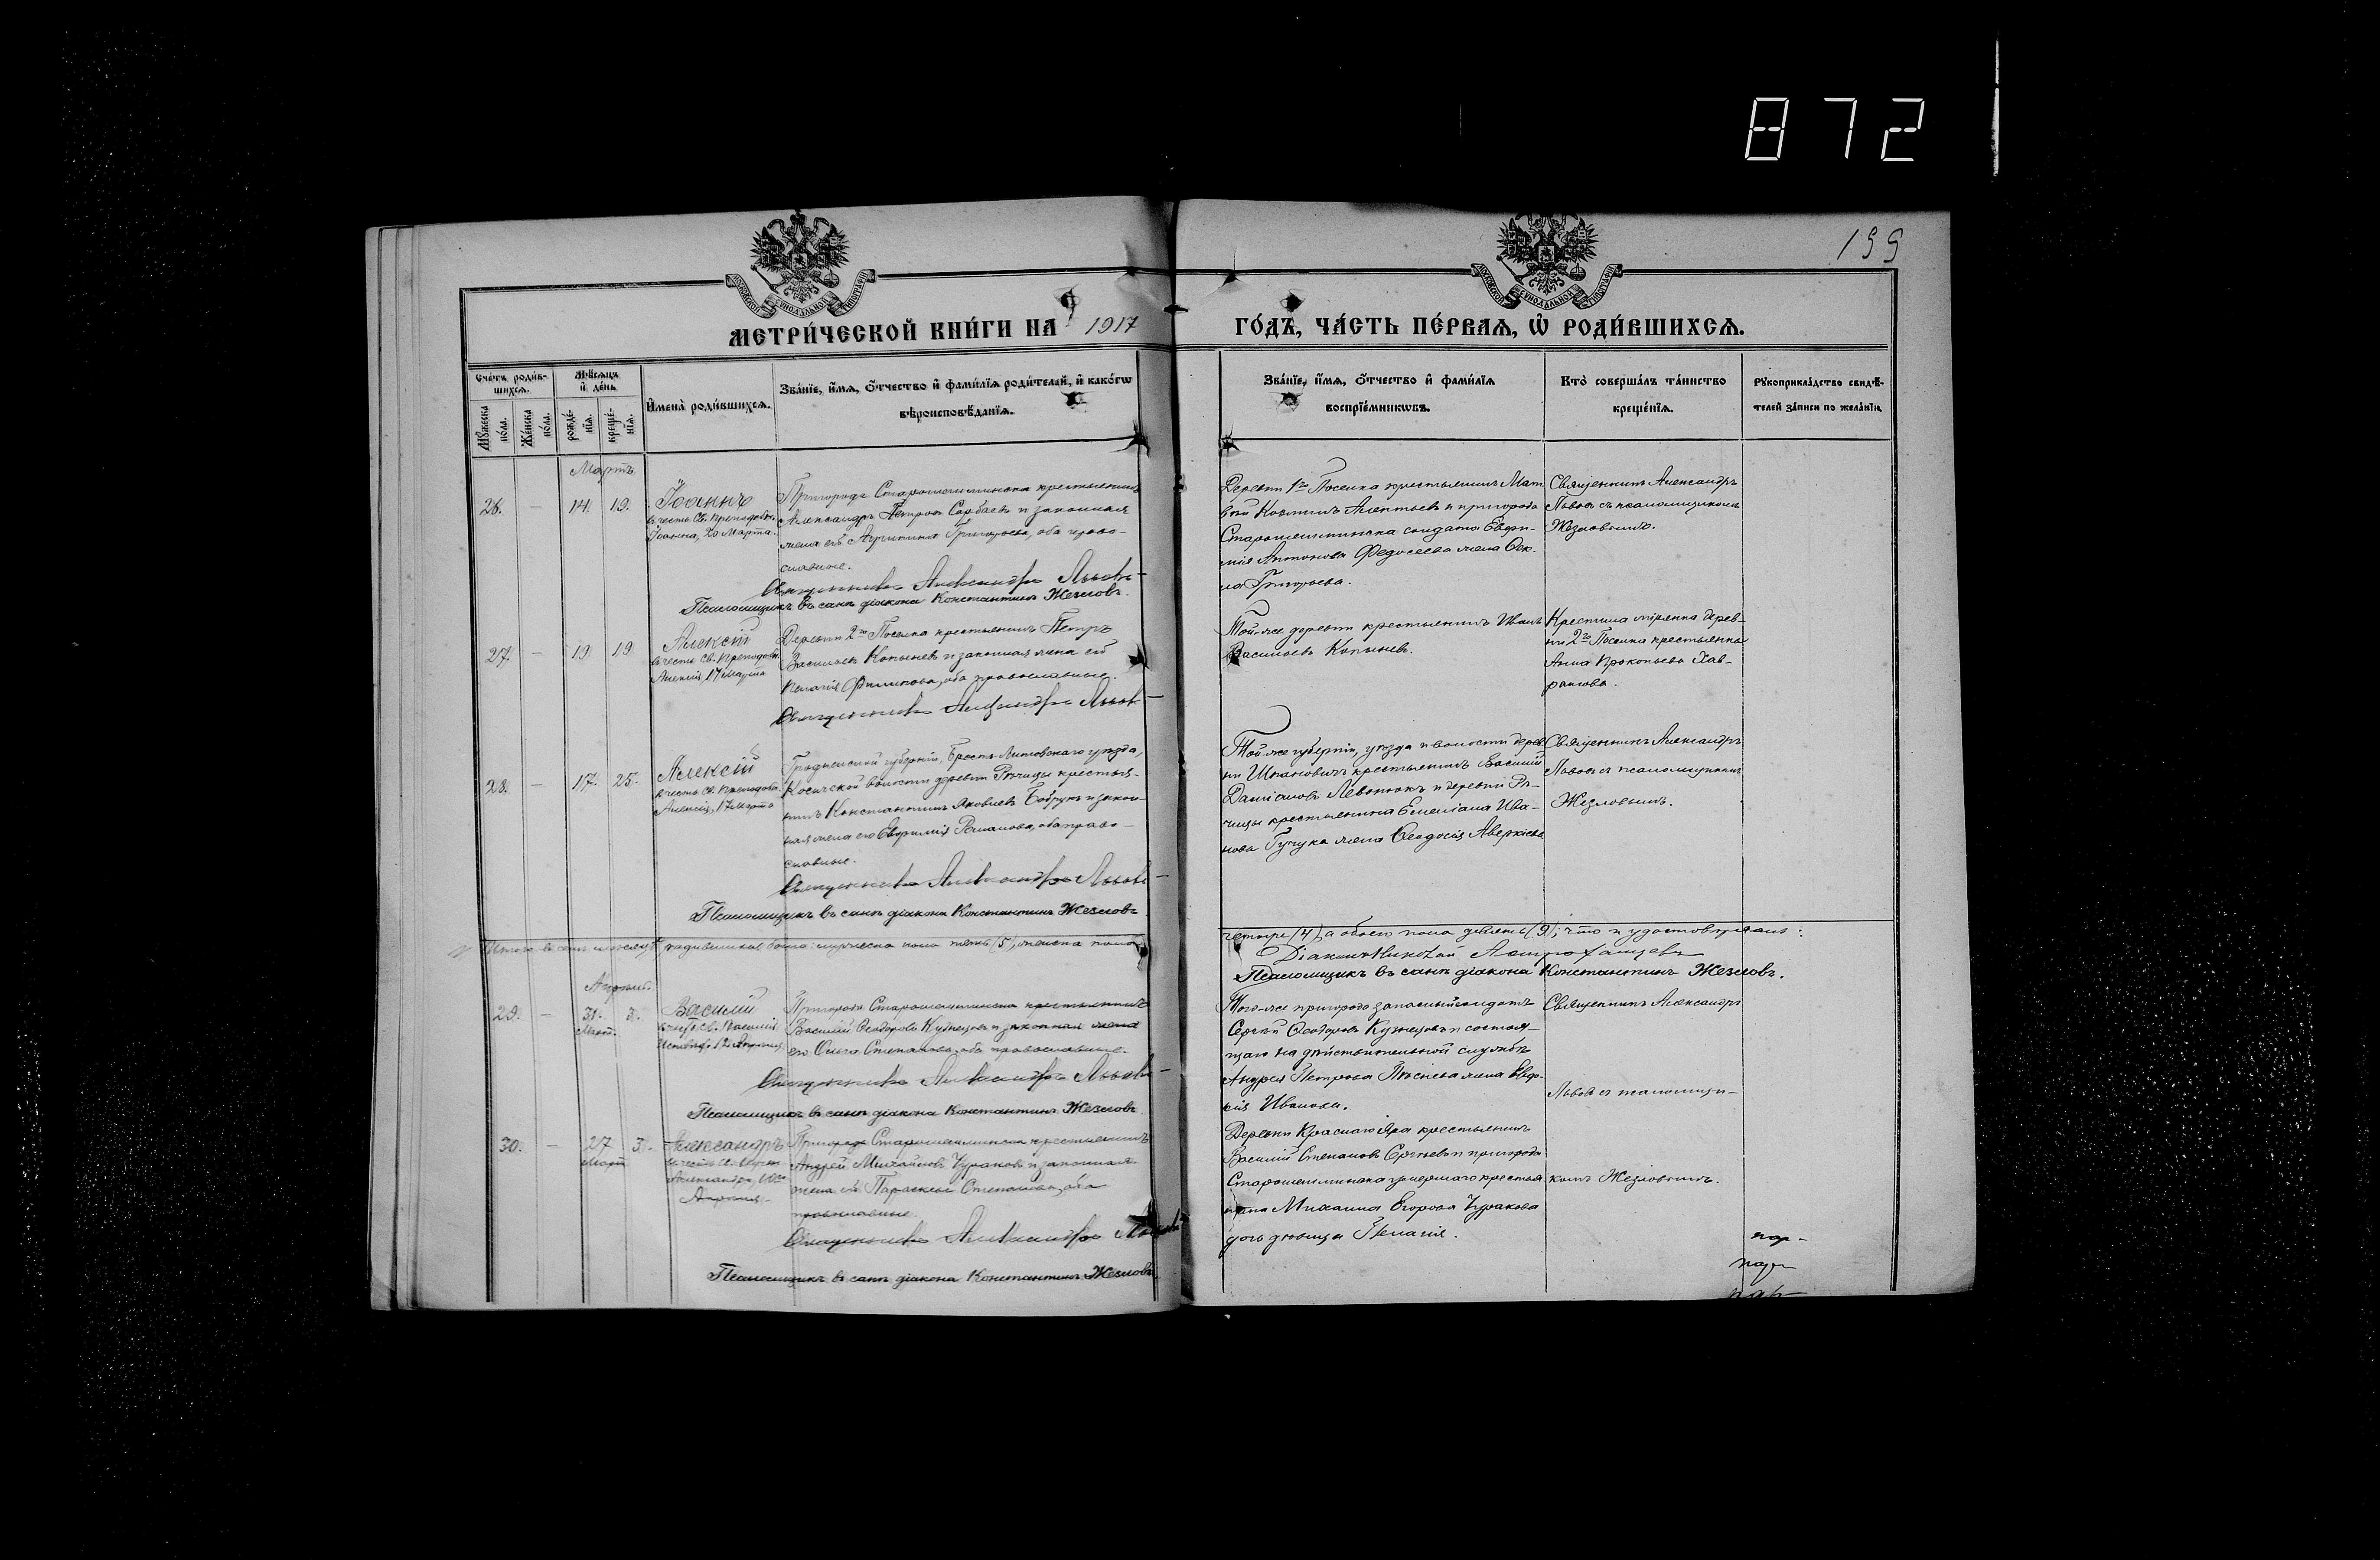 872
199
МОСКОВСКОЙ СѴНОДАЛЬНОЙ ТИПОГРАФІИ
МОСКОВСКОЙ СѴНОДАЛЬНОЙ ТИПОГРАФІИ
МЕТРИ́ЧЕСКОЙ КНИ́ГИ НА 1917
ГО́ДЪ, ЧА́СТЬ ПЕ́РВАѦ, Ѡ҆ РОДИ́ВШИХСѦ.
Сче́тъ роди́в-
шихсѧ.
Мꙋ́жеска по́ла.
Же́нска по́ла.
Мѣ́сѧцъ
и҆ де́нь
рожде́нїѧ.
креще́нїѧ.
И҆мена̀ роди́вшихсѧ.
Зва́нїе, и҆́мѧ, ѻ҆́тчество и҆ фами́лїѧ роди́телей, и҆ како́гѡ
вѣроисповѣ́данїѧ.
Зва́нїе, и҆́мѧ, ѻ҆́тчество и҆ фами́лїѧ
воспрїе́мникѡвъ.
Кто̀ соверша́лъ та́инство
креще́нїѧ.
Рꙋкоприкла́дство свидѣ́-
телей за́писи по жела́нїю.
Мартъ
26. — 14. 19.
Іоаннъ
въ честь Св. Преподобн.
Іоанна, 20 Марта.
Пригорода Старошешминска крестьянинъ
Александръ Петровъ Сарбаевъ и законная
жена его Агрипина Григорьева, оба право-
славные.
Священникъ Александръ Львовъ
Псаломщикъ въ санѣ діакона Константинъ Жезловъ.
Деревни 1го Поселка крестьянинъ Мат
вѣй Козминъ Леонтьевъ и пригорода
Старошешминска солдата Евфи-
мія Антонова Федосеева жена Фек
ла Григорьева.
Священникъ Александръ
Львовъ съ псаломщикомъ
Жезловымъ.
27. — 19 19
Алексій
въ честь Св. Преподобн.
Алексія, 17 Марта
Деревни 2го Поселка крестьянинъ Петръ
Васильевъ Копыневъ и законная жена его
Пелагія Филипова, оба православные.
Священникъ Александръ Львовъ
Той-же деревни крестьянинъ Иванъ
Васильевъ Копыневъ.
Крестила мірянка дерев-
ни 2го Поселка крестьянка
Анна Прокопьева Хав-
ронова.
28. — 17. 25.
Алексій
въ честь Св. Преподобн.
Алексія, 17 Марта
Гродненской губерніи, Брестъ-Литовскаго уѣзда,
Косичской волости деревни Рѣчицы крестья-
нинъ Константинъ Яковлевъ Бобрукъ и закон-
ная жена его Евфимія Романова, оба право-
славные.
Священникъ Александръ Львовъ
Псаломщикъ въ санѣ діакона Константинъ Жезловъ
Той же губерніи, уѣзда и волости дерев
ни крестьянинъ Василій
Даміановъ Левонюкъ и деревни Рѣ-
чицы крестьянина Емеліана Ива-
нова жена Ѳеодосія Аверкіева
Священникъ Александръ
Львовъ съ псаломщикомъ
Жезловымъ.
Итого въ семъ мѣсяцѣ родившихся было: мужеска пола пять (5), женска пола
четыре (4), а обоего пола девять (9), что и удостовѣряемъ:
Діаконъ Николай
Псаломщикъ въ санѣ діакона Константинъ Жезловъ.
Апрѣль.
29. — 31. 3.
Март.
Василій
въ честь Св. Василія
Исповѣд. 12 Апрѣля
Пригорода Старошешминска крестьянинъ
Василій Ѳеодоровъ Кузнецовъ и законная жена
его Ольга Степанова, оба православные.
Священникъ Александръ Львовъ
Псаломщикъ въ санѣ діакона Константинъ Жезловъ
Того-же пригорода запасный солдатъ
Сергѣй Ѳеодоровъ Кузнецовъ и состоя-
щаго на дѣйствительной службѣ
Андрея Петрова жена Евдо-
кія Иванова.
Священникъ Александръ
Львовъ съ псаломщи-
30. — 27 3.
Март
Александръ
Александра, 10го
Апрѣля.
Пригорода Старошешминска крестьянинъ
Андрей Михайловъ Чураковъ и законная
жена его Параскева Степанова, оба
православные.
Священникъ Александръ Львовъ
Псаломщикъ въ санѣ діакона Константинъ Жезловъ
Деревни Краснаго Яра крестьянинъ
Василій Степановъ Сергѣевъ и пригорода
Старошешминска умершаго крестья
нина Михаила Егорова Чуракова
дочь дѣвица Пелагія.
комъ Жезловымъ.